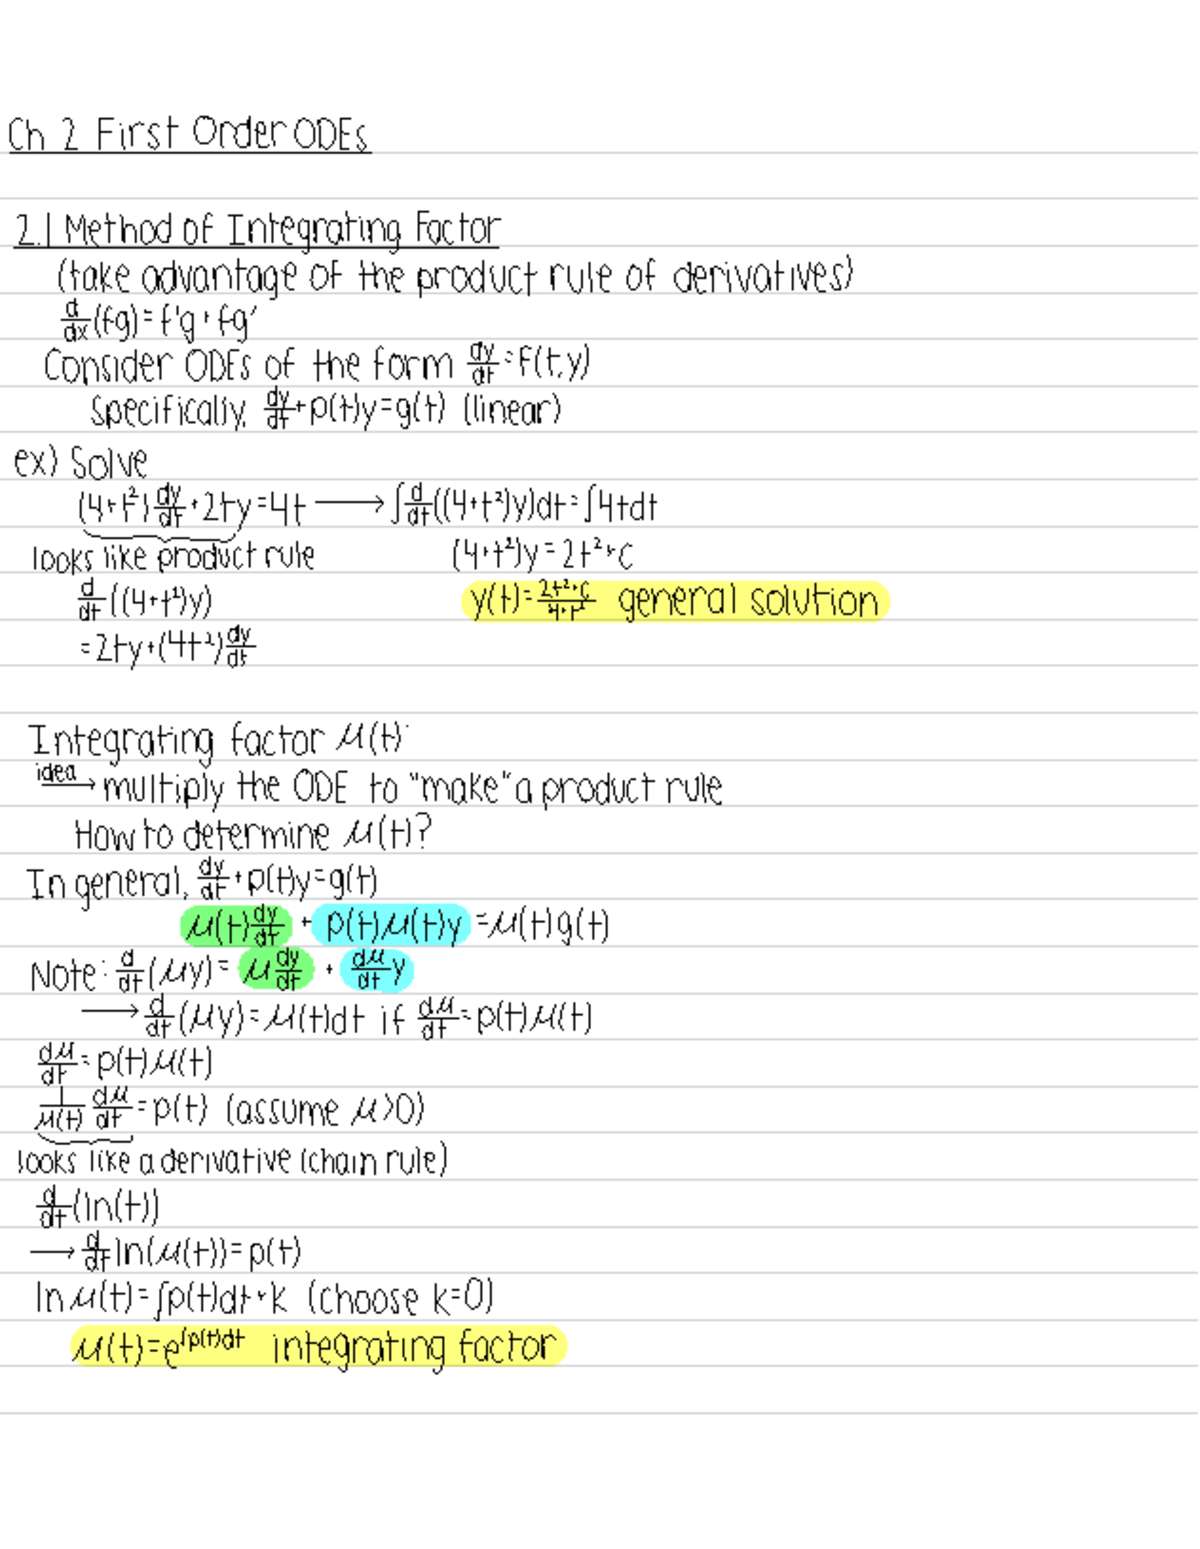 Ch 2 First Order ODEs
2.1 Method of Integrating Factor
(take advantage of the product rule of derivatives)
d/dx(fg)=f'g+fg'
Consider ODEs of the form dy/dt=F(t,y)
Specifically, dy/dt+p(t)y=g(t) (linear)
ex) Solve
(4+t²)dy/dt+2ty=4t ⟶ ∫d/dt((4+t²)y)dt=∫4tdt
looks like product rule (4+t²)y=2t²+C
d/dt((4+t²)y) y(t)=2t²+C/4+t² general solution
=2ty+(4t²)dy/dt
Integrating factor μ(t):
idea⟶ multiply the ODE to "make" a product rule
How to determine μ(t)?
In general, dy/dt+p(t)y=g(t)
μ(t)dy/dt + p(t)μ(t)y =μ(t)g(t)
Note: d/dt(μy)= μdy/dt + dμ/dt y
⟶ d/dt(μy)=μ(t)dt if dμ/dt=p(t)μ(t)
dμ/dt=p(t)μ(t)
1/μ(t) dμ/dt=p(t) (assume μ>0)
looks like a derivative (chain rule)
d/dt(ln(t))
⟶ d/dt ln(μ(t))=p(t)
ln μ(t)=∫p(t)dt+k (choose k=0)
μ(t)=e^∫p(t)dt integrating factor